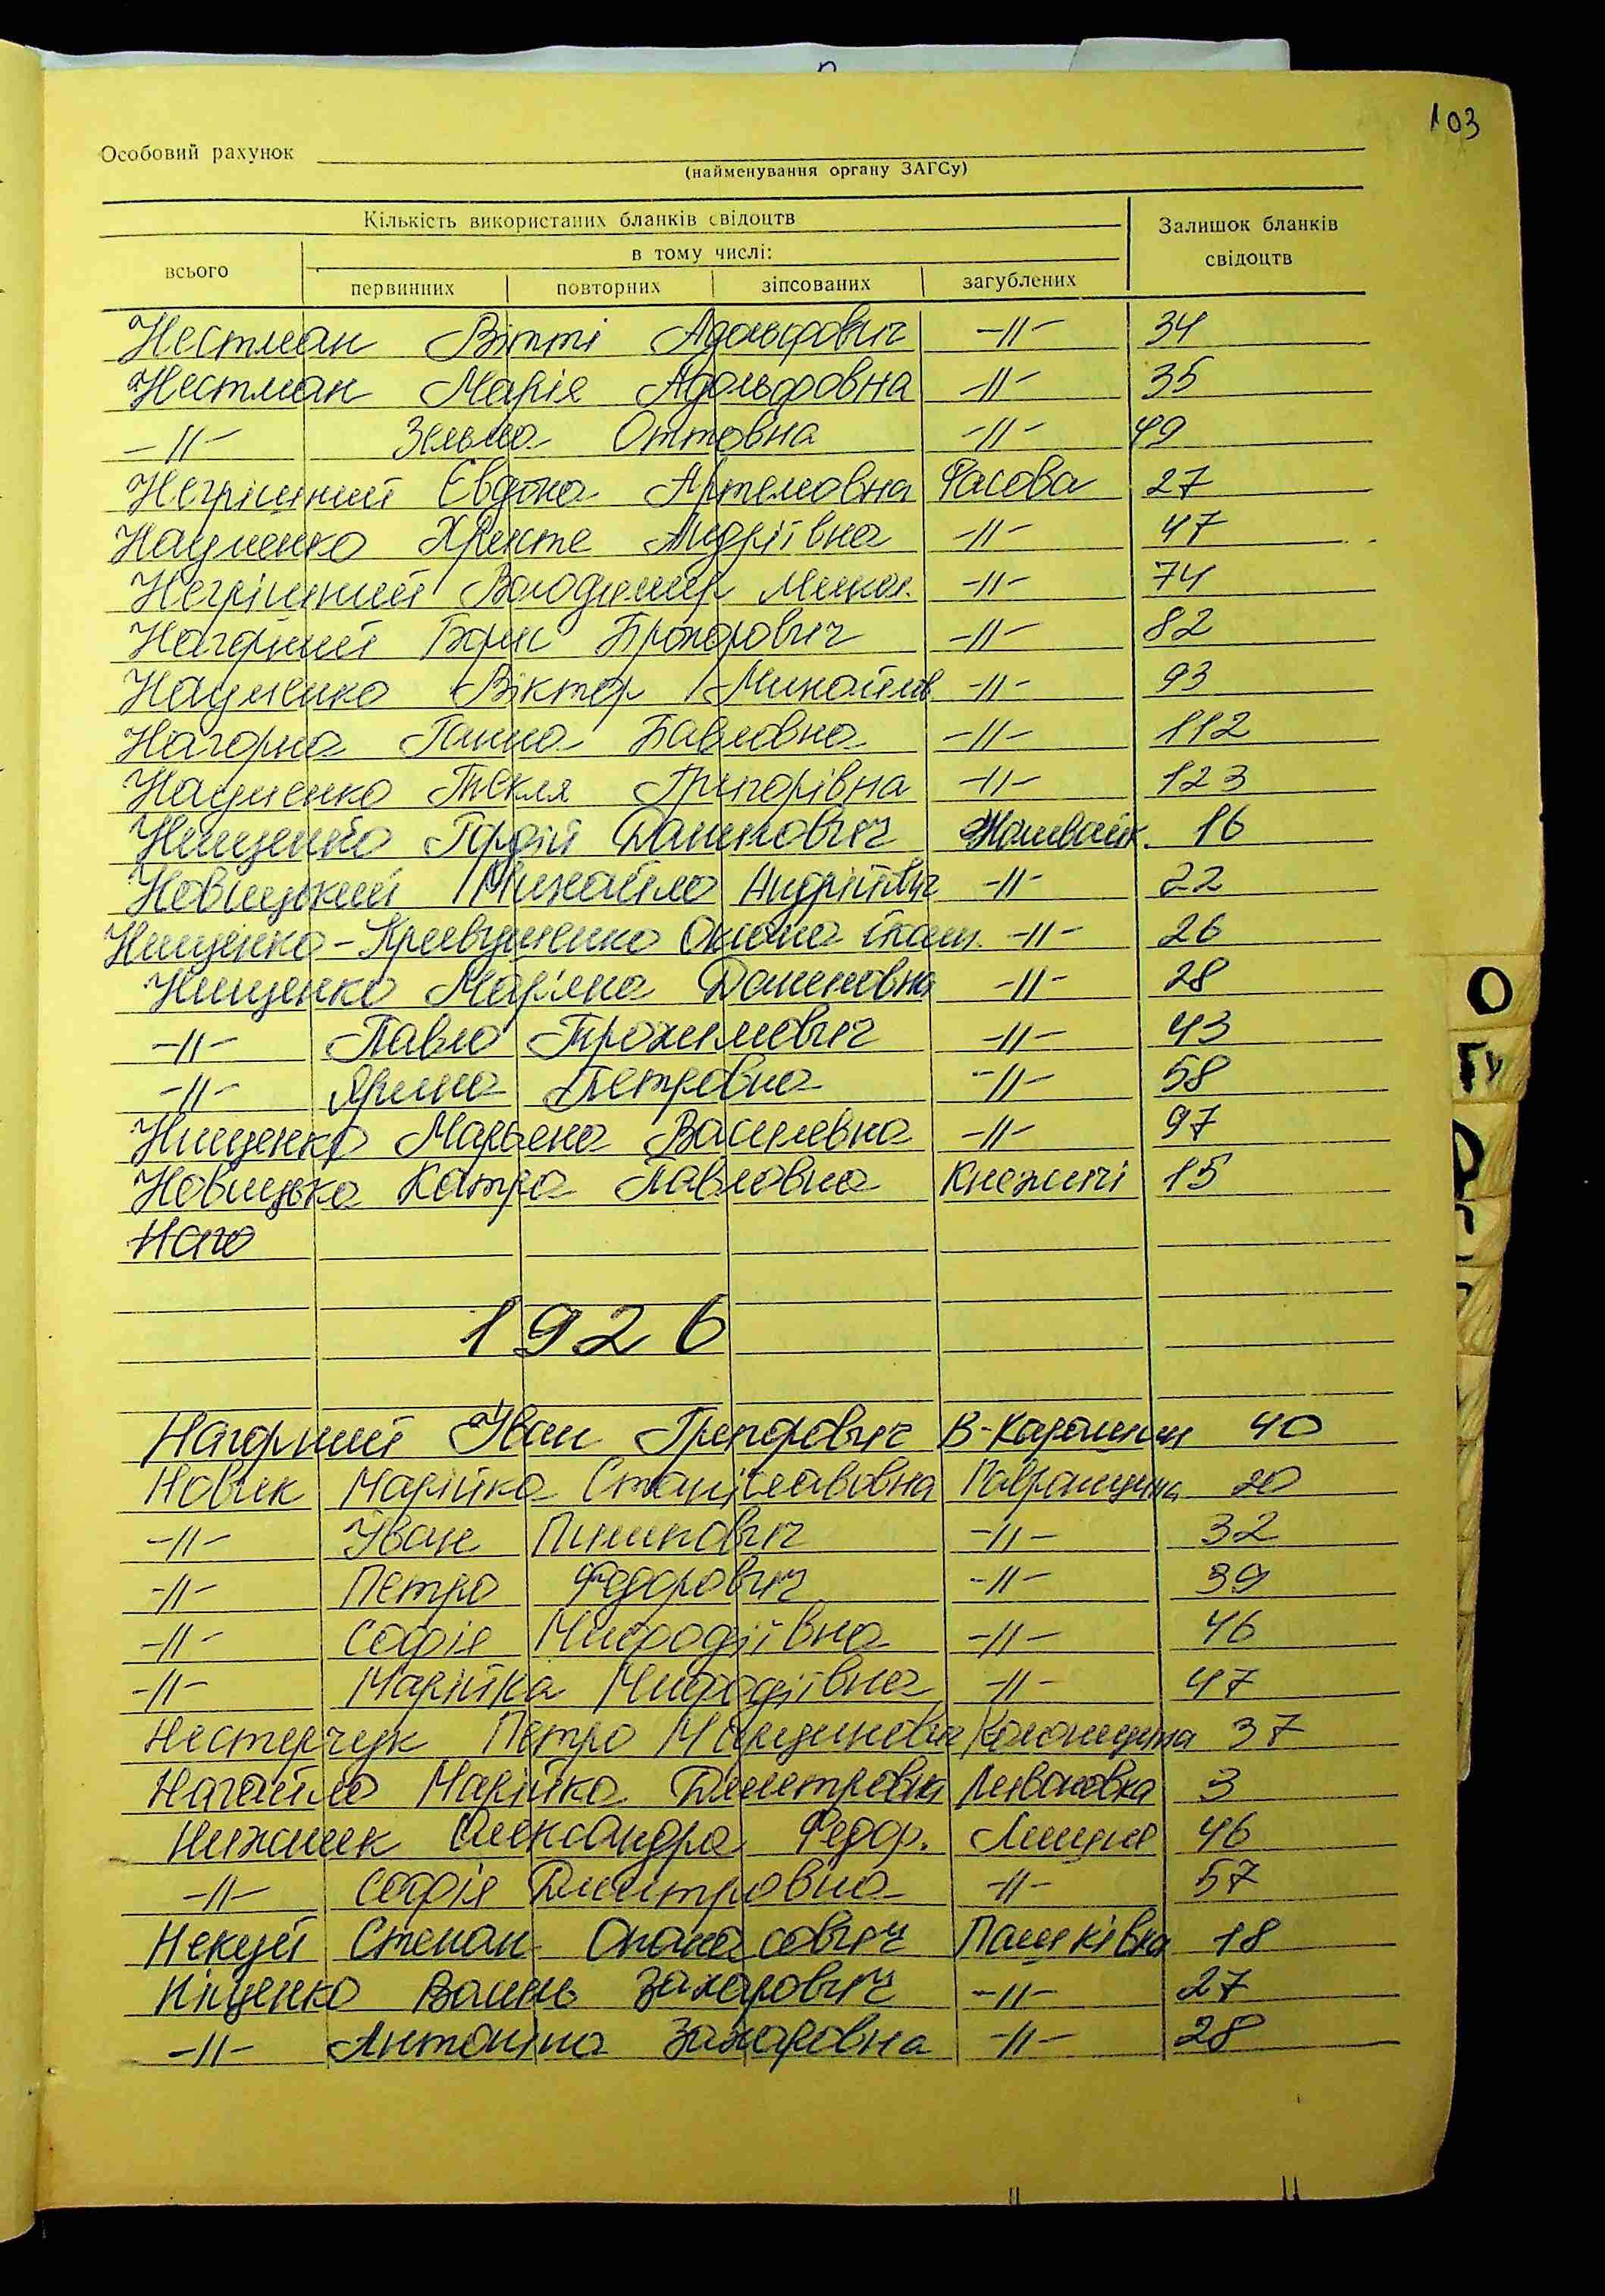 103
Особовий рахунок
(найменування органу ЗАГСу)
Кількість використаних бланків свідоцтв
Залишок бланків свідоцтв
всього
в тому числі:
первинних повторних зіпсованих загублених
Нестман Вітті Адольфович -//- 34
Нестман Марія Адольфовна -//- 35
-//- Зельма Оттовна -//- 49
Негрішний Євдока Артемовна Фасова 27
Науменко Христе Андріївна -//- 47
Негрішний Володимир Микол. -//- 74
Нагорний Борис Прохорович -//- 82
Науменко Віктор Михайлів -//- 93
Нагорна Ганна Павловна -//- 112
Науменко Текля Григорівна -//- 123
Нищенко Гордій Данилович 16
Новицький Михайло Андрійович -//- 22
Нищенко-Кравзуненко Оксана -//- 26
Нищенко Мар'яна Даниловна -//- 28
-//- Павло Трохимович -//- 43
-//- Ярина Петровна -//- 58
Нищенко Марьяна Василевна -//- 97
Новицька Катра Павловна Княжичі 15
Наго
1926
Нагорний Іван Григорович В-Карашин 40
Новик Марійка Станіславовна Гавронщина 20
-//- Іван Пилипович -//- 32
-//- Петро Федорович -//- 39
-//- Софія Мифодіївна -//- 46
-//- Марійка Мифодіївна -//- 47
Нестерчук Петро Колонщина 37
Нагайло Марійка Дмитровна Литвиновка 3
Нижник Олександра Федор. Липдня 46
-//- Софія Дмитровна -//- 57
Некуй Степан Опанасович Пашківка 18
Ніценко Василь Захарович -//- 27
-//- Антоніна Захаровна -//- 28
О